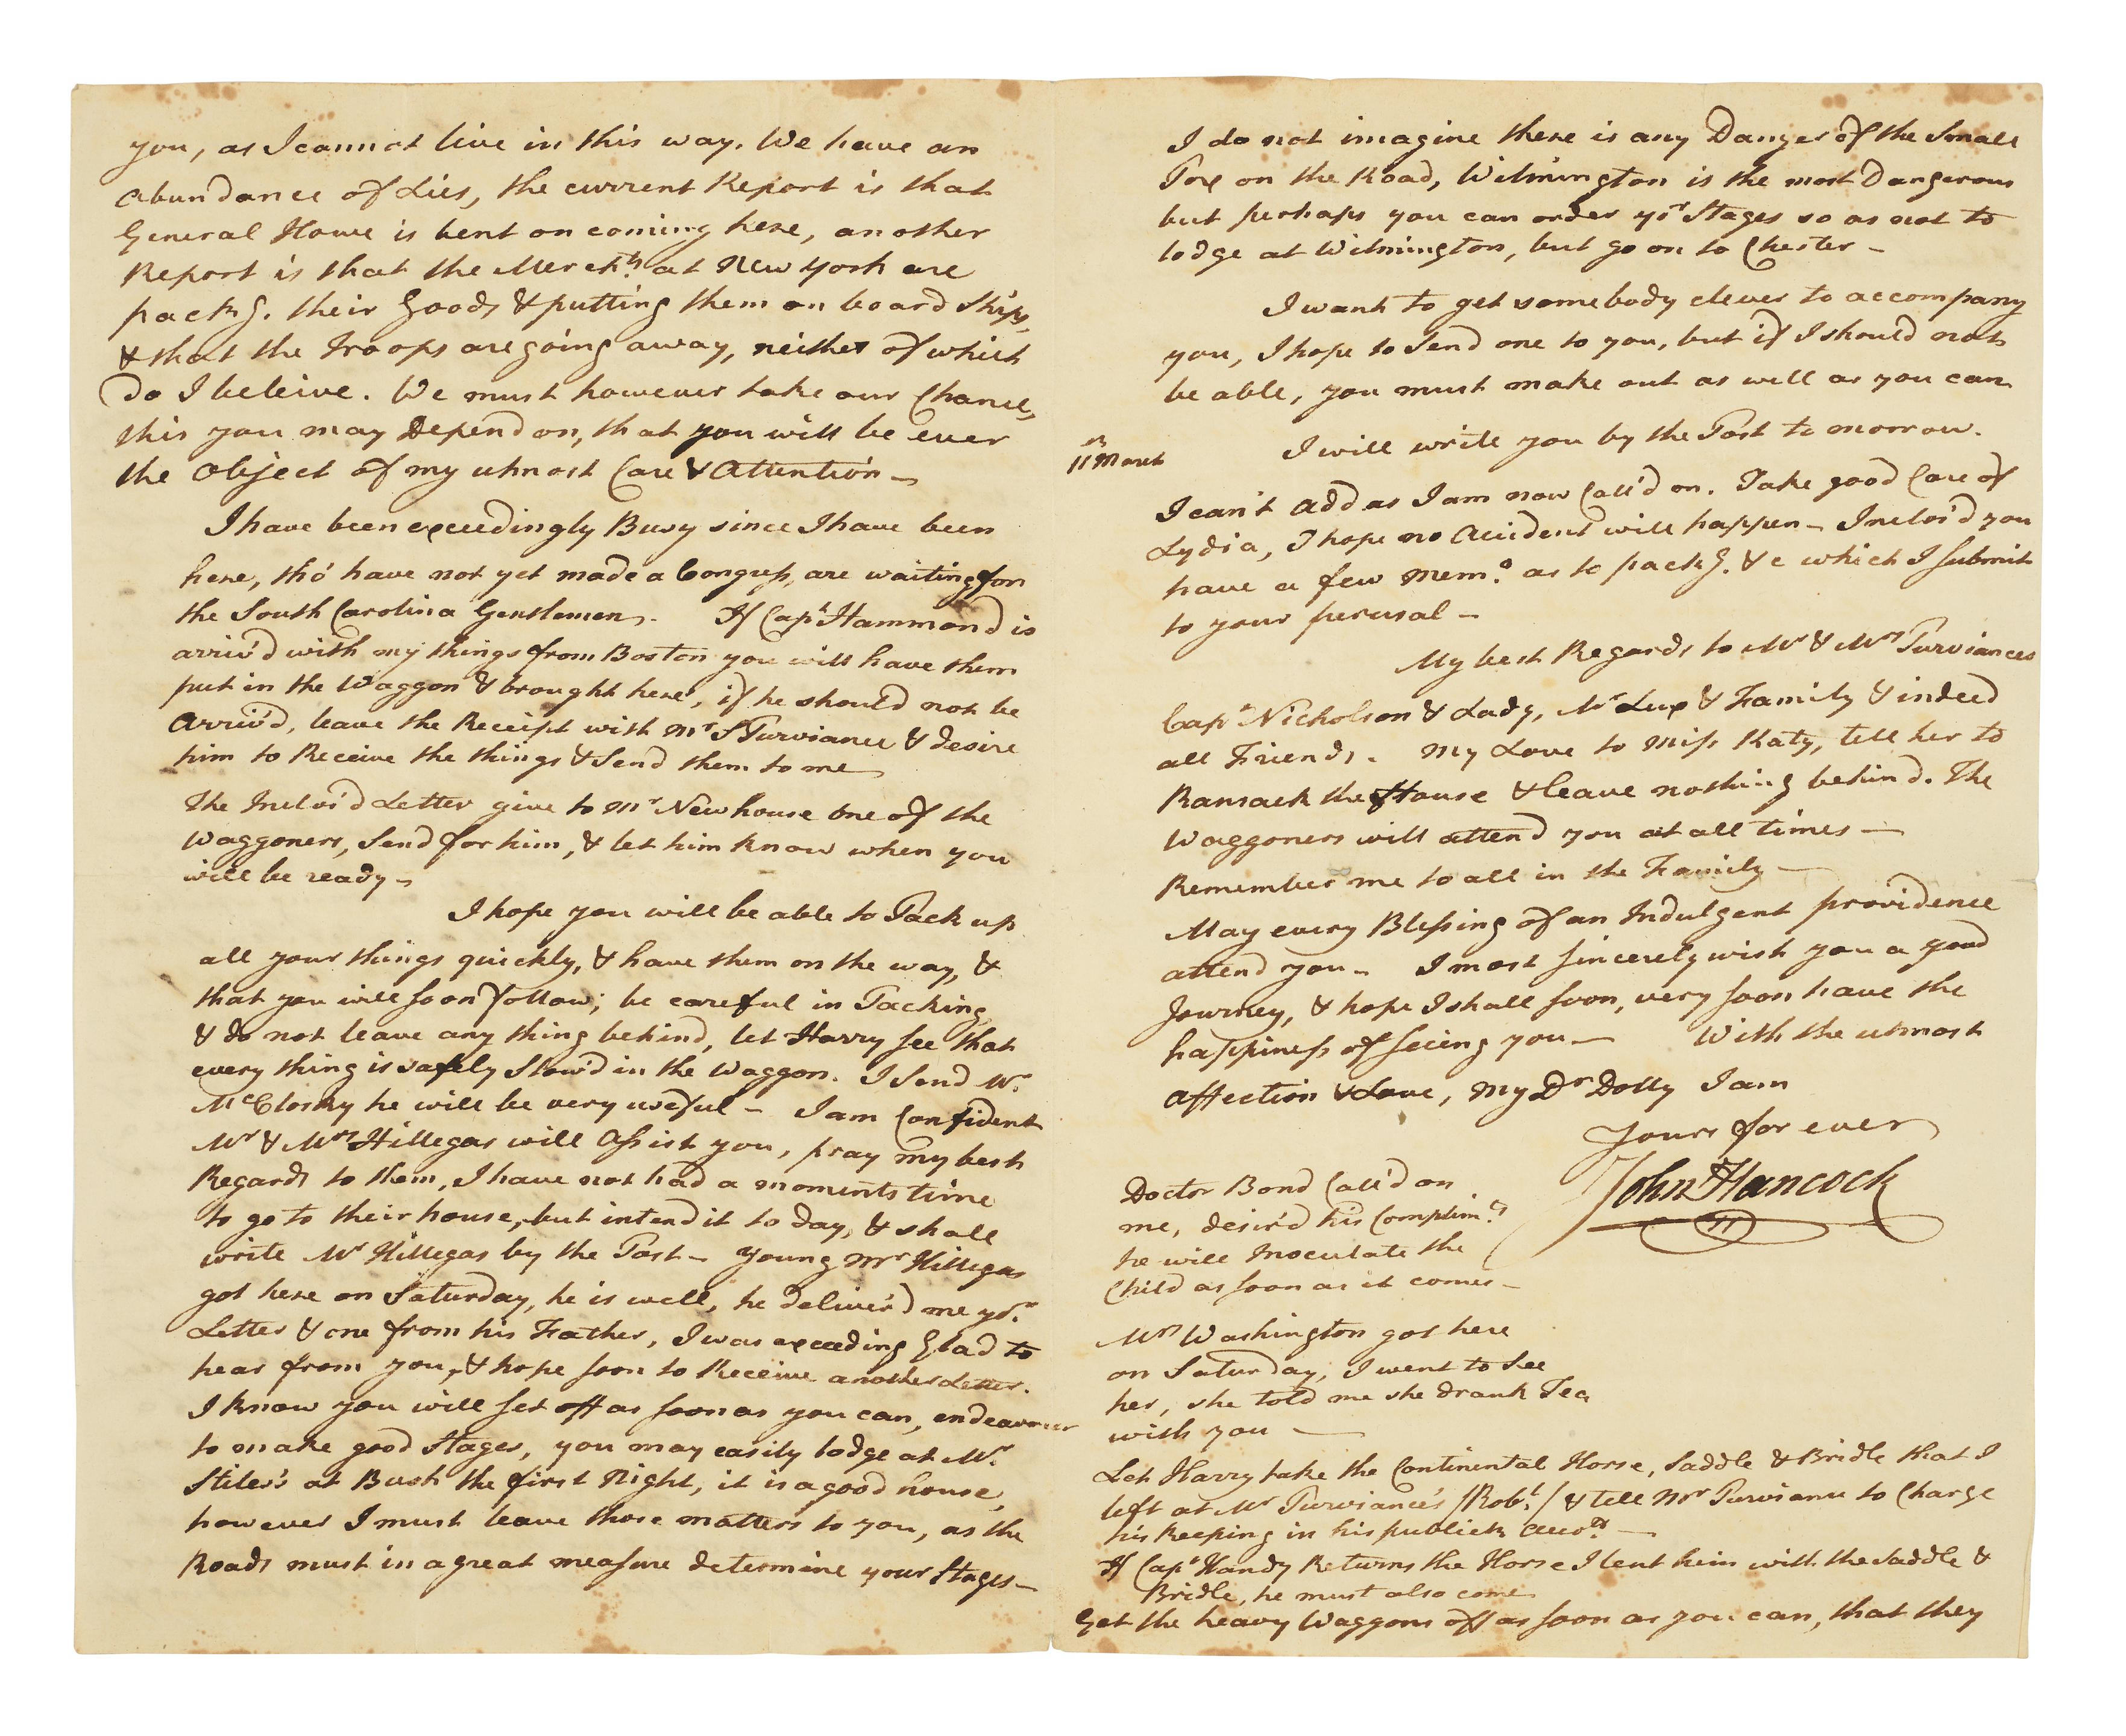 you, as I cannot live in this way. We have an
abundance of Lies, the current Report is that
General Howe is bent on coming here, another
Report is that the Merchts. at New York are
packg. their Goods & putting them on board Ships,
& that the Troops are going away, neither of which
do I beleive. We must however take our Chance,
this you may Depend on, that you will be ever
the object of my utmost Care & Attention –
I have been exceedingly Busy since I have been
here, tho' have not yet made a Congress, are waiting for
the South Carolina Gentlemen. If Capt Hammond is
arriv'd with my things from Boston you will have them
put in the Waggon & brought here, if he should not be
Arriv'd, leave the Receipt with Mr S Purviance & desire
him to Receive the things & Send them to me
The Inclos'd Letter give to Mr Newhouse one of the
Waggoners, Send for him, & let him know when you
will be ready –
I hope you will be able to Pack up
all your things quickly, & have them on the way, &
that you will soon follow; be careful in Packing
& do not leave any thing behind, let Harry see that
every thing is safely Stow'd in the Waggon. I Send Mr.
McClosky he will be very useful – I am Confident
Mr & Mrs Hillegas will Assist you, pray my best
Regards to them, I have not had a moments time
to go to their house, but intend it to day, & shall
write Mr Hillegas by the Post – Young Mr Hillegas
got here on Saturday, he is well, he deliver'd me yor.
Letter & one from his Father, I was exceeding Glad to
hear from you, & hope soon to Receive another Letter.
I know you will set off as soon as you can, endeavour
to make good Stages, you may easily lodge at Mr.
Stiles's at Bush the first Night, it is a good house,
however I must leave those matters to you, as the
Roads must in a great measure determine your Stages –
I do not imagine there is any Danger of the Small
Pox on the Road, Wilmington is the most Dangerous
but perhaps you can order yor Stages so as not to
lodge at Wilmington, but go on to Chester –
I want to get somebody clever to accompany
you, I hope to Send one to you, but if I should not
be able, you must make out as well as you can
11th March
I will write you by the Post to morrow.
I can't add as I am now Call'd on. Take good Care of
Lydia, I hope no Accident will happen – Inclos'd you
have a few Memo. as to packg. &c which I submit
to your perusal –
My best Regards to Mr & Mrs Purviances
Capt Nicholson & Lady, Mr Lux & Family & indeed
all Friends. My Love to Miss Katy, tell her to
Ransack the House & leave nothing behind. The
Waggoners will attend you at all times –
Remember me to all in the Family –
May every Blessing of an Indulgent providence
attend you – I most sincerely wish you a good
Journey, & hope I shall soon, very soon have the
happiness of seeing you – With the utmost
affection & Love, My Dr Dolly I am
Yours for ever
John Hancock
Doctor Bond Call'd on
me, desir'd his Complimts.
he will Inoculate the
Child as soon as it comes –
Mrs Washington got here
on Saturday, I went to See
her, she told me she drank Tea
with you –
Let Harry take the Continental Horse, Saddle & Bridle that I
left at Mr Purviance's /Robt./ & tell Mr Purviance to Charge
his keeping in his publick Accots. –
If Capt Handy Returns the Horse I lent him with the Saddle &
Bridle, he must also come
Get the heavy Waggons off as soon as you can, that they